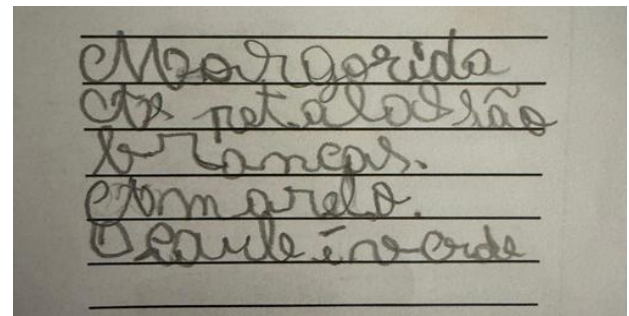 Margarida
As petalas são
brancas.
Amarelo.
O caule é verde